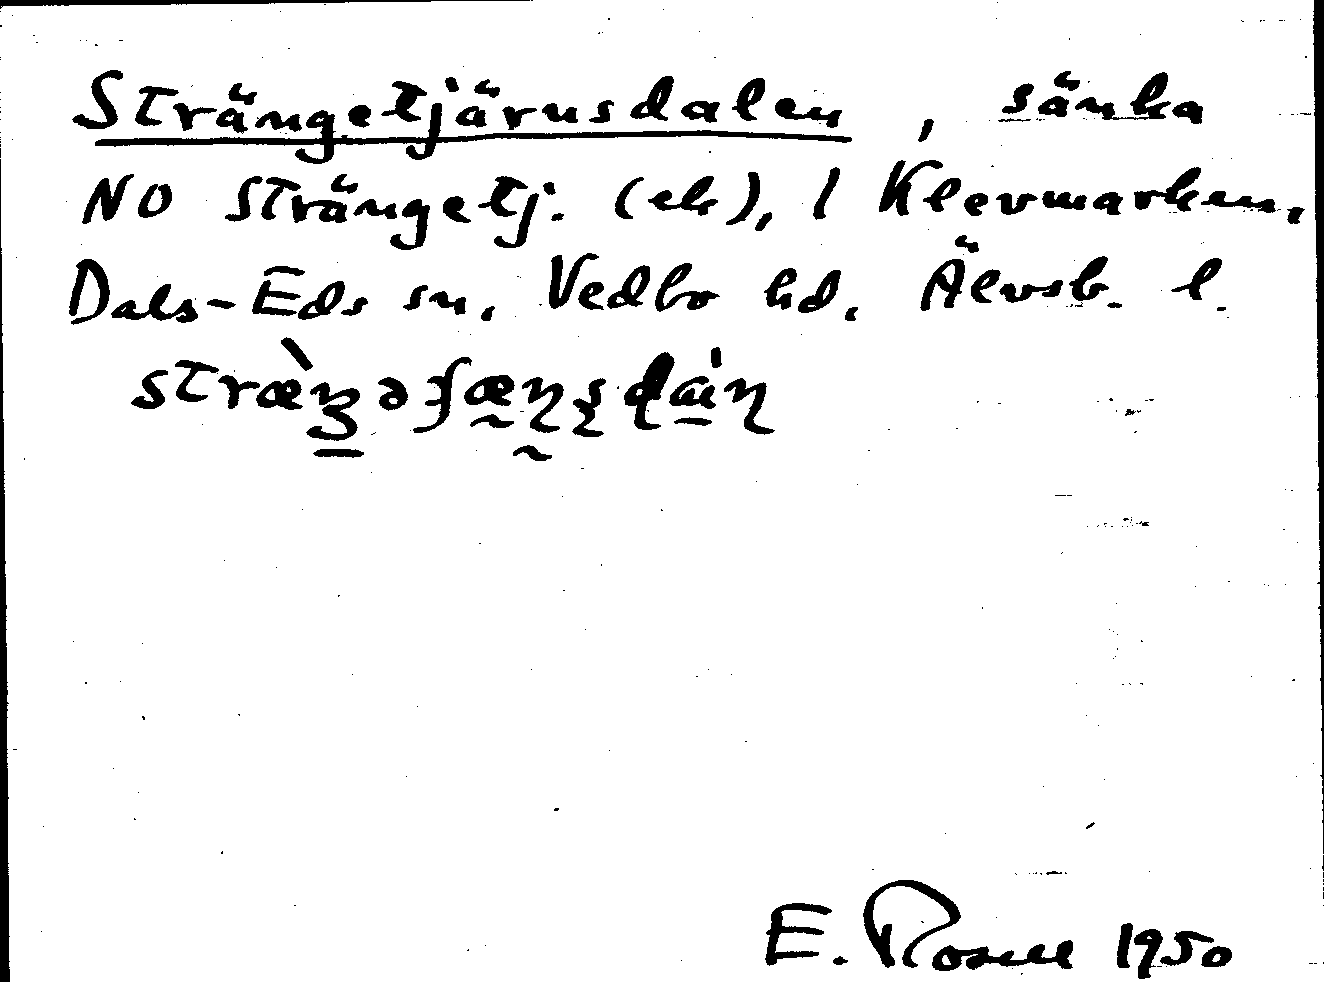 Strängetjärnsdalen, sänka
NO Strängetj. (ek), i Klevmarken,
Dals-Eds sn, Vedbo hd. Älvsb. l.
E. Rosell 1950